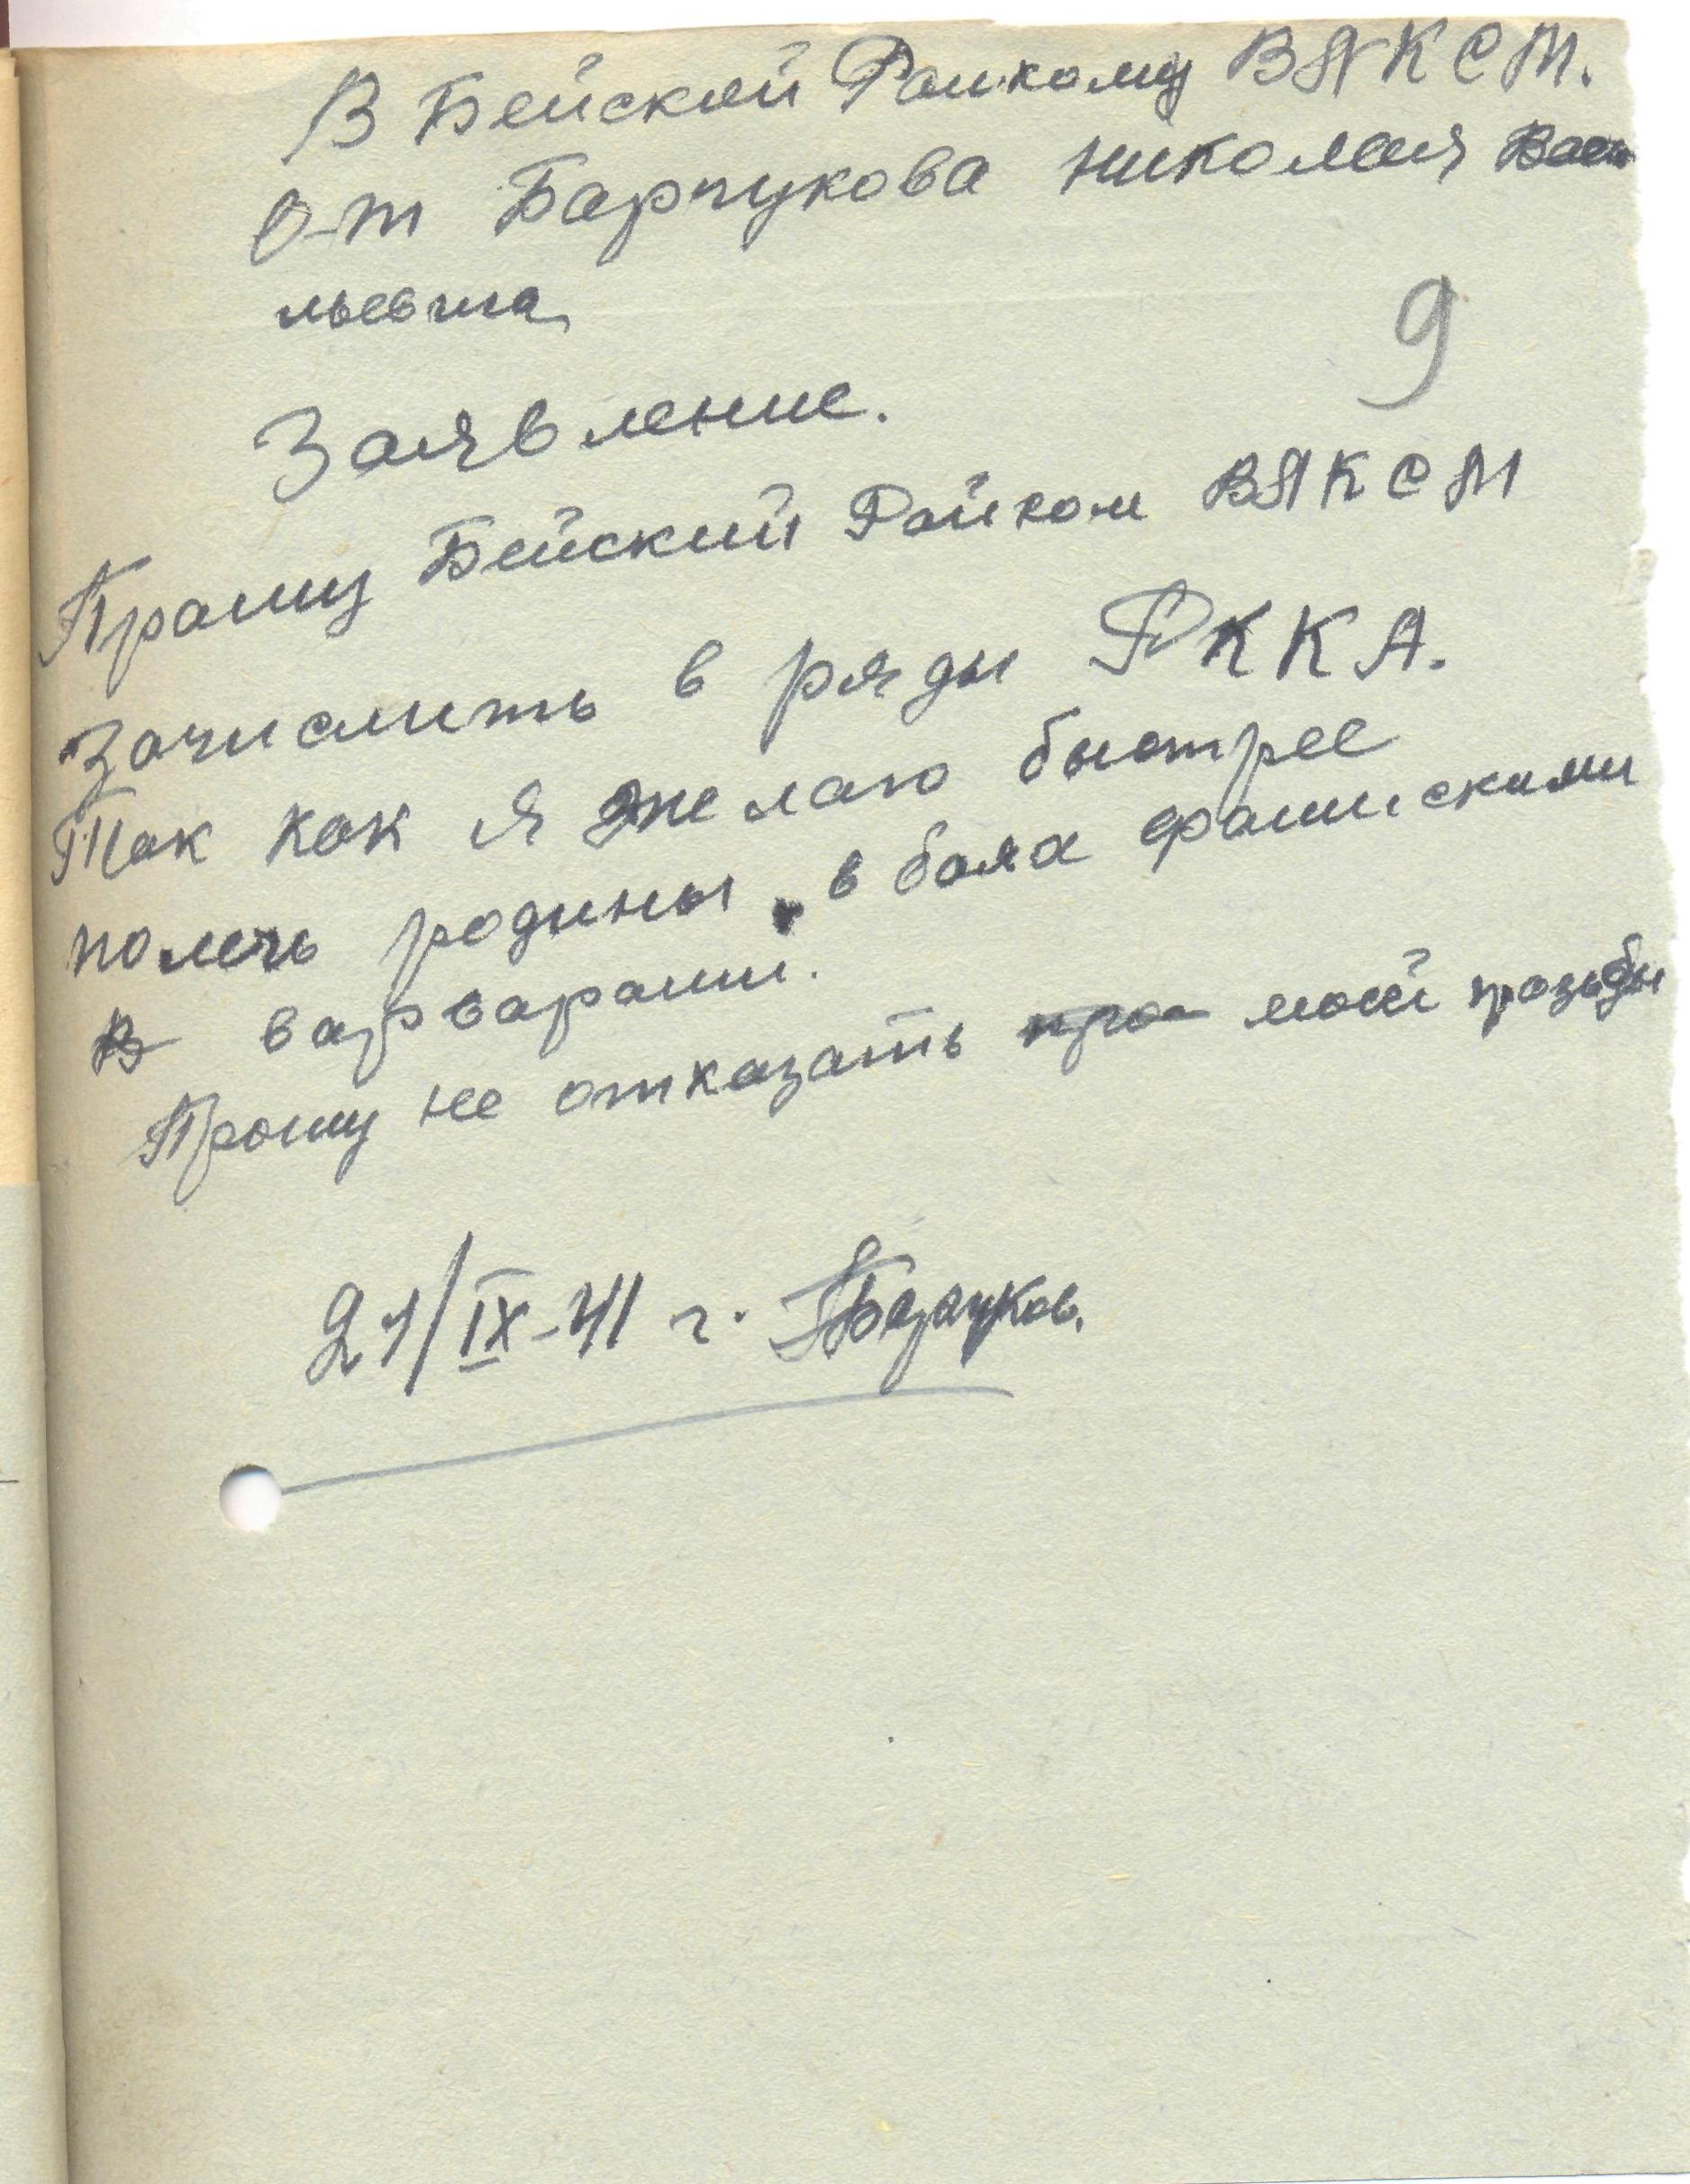 В Бейской Райкому ВЛКСМ.
От Барчукова николая Васи
льевича
9
Заявление.
Прашу Бейский Райком ВЛКСМ
Зачислить в ряды РККА.
Так как я желаю быстрее
помочь родины, в боях фашискими
варварами.
Прошу не отказать моей прозьбы
21/IX-41 г. Барчуков.